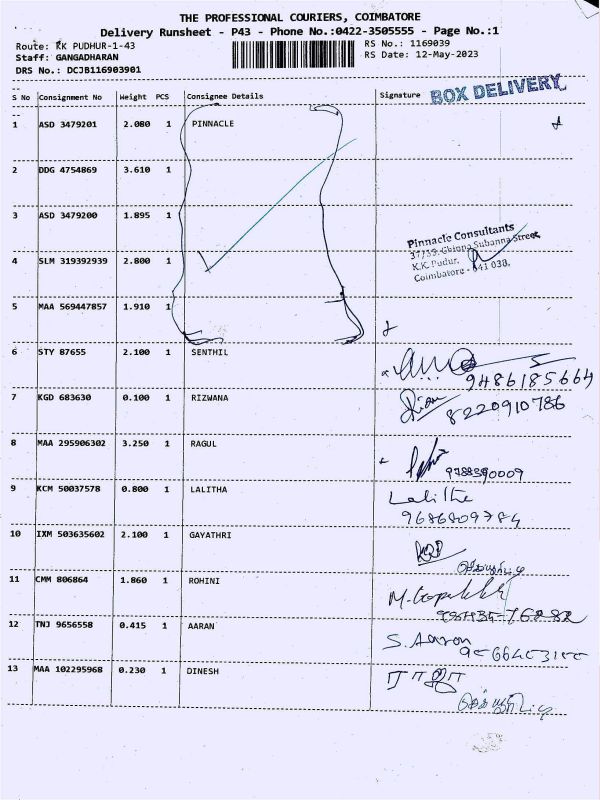 THE PROFESSIONAL COURIERS, COIMBATORE
Delivery Runsheet - P43 - Phone No.:0422-3505555 - Page No.:1
Route: KK PUDHUR-1-43
RS No.: 1169039
Staff: GANGADHARAN
RS Date: 12-May-2023
DRS No.: DCJB116903901
S No Consignment No Weight PCS Consignee Details Signature BOX DELIVERY
1 ASD 3479201 2.080 1 PINNACLE
2 DDG 4754869 3.610 1
3 ASD 3479200 1.895 1
Pinnacle Consultants
4 SLM 319392939 2.800 1
K.K. Pudur,
Coimbatore - 641 038.
5 MAA 569447857 1.910 1
6 STY 87655 2.100 1 SENTHIL
9486185664
7 KGD 683630 0.100 1 RIZWANA
8220910786
8 MAA 295906302 3.250 1 RAGUL
9788390009
9 KCM 50037578 0.800 1 LALITHA Lalitha
9686809784
10 IXM 503635602 2.100 1 GAYATHRI
11 CMM 806864 1.860 1 ROHINI
12 TNJ 9656558 0.415 1 AARAN S. Aaron
13 MAA 102295968 0.230 1 DINESH